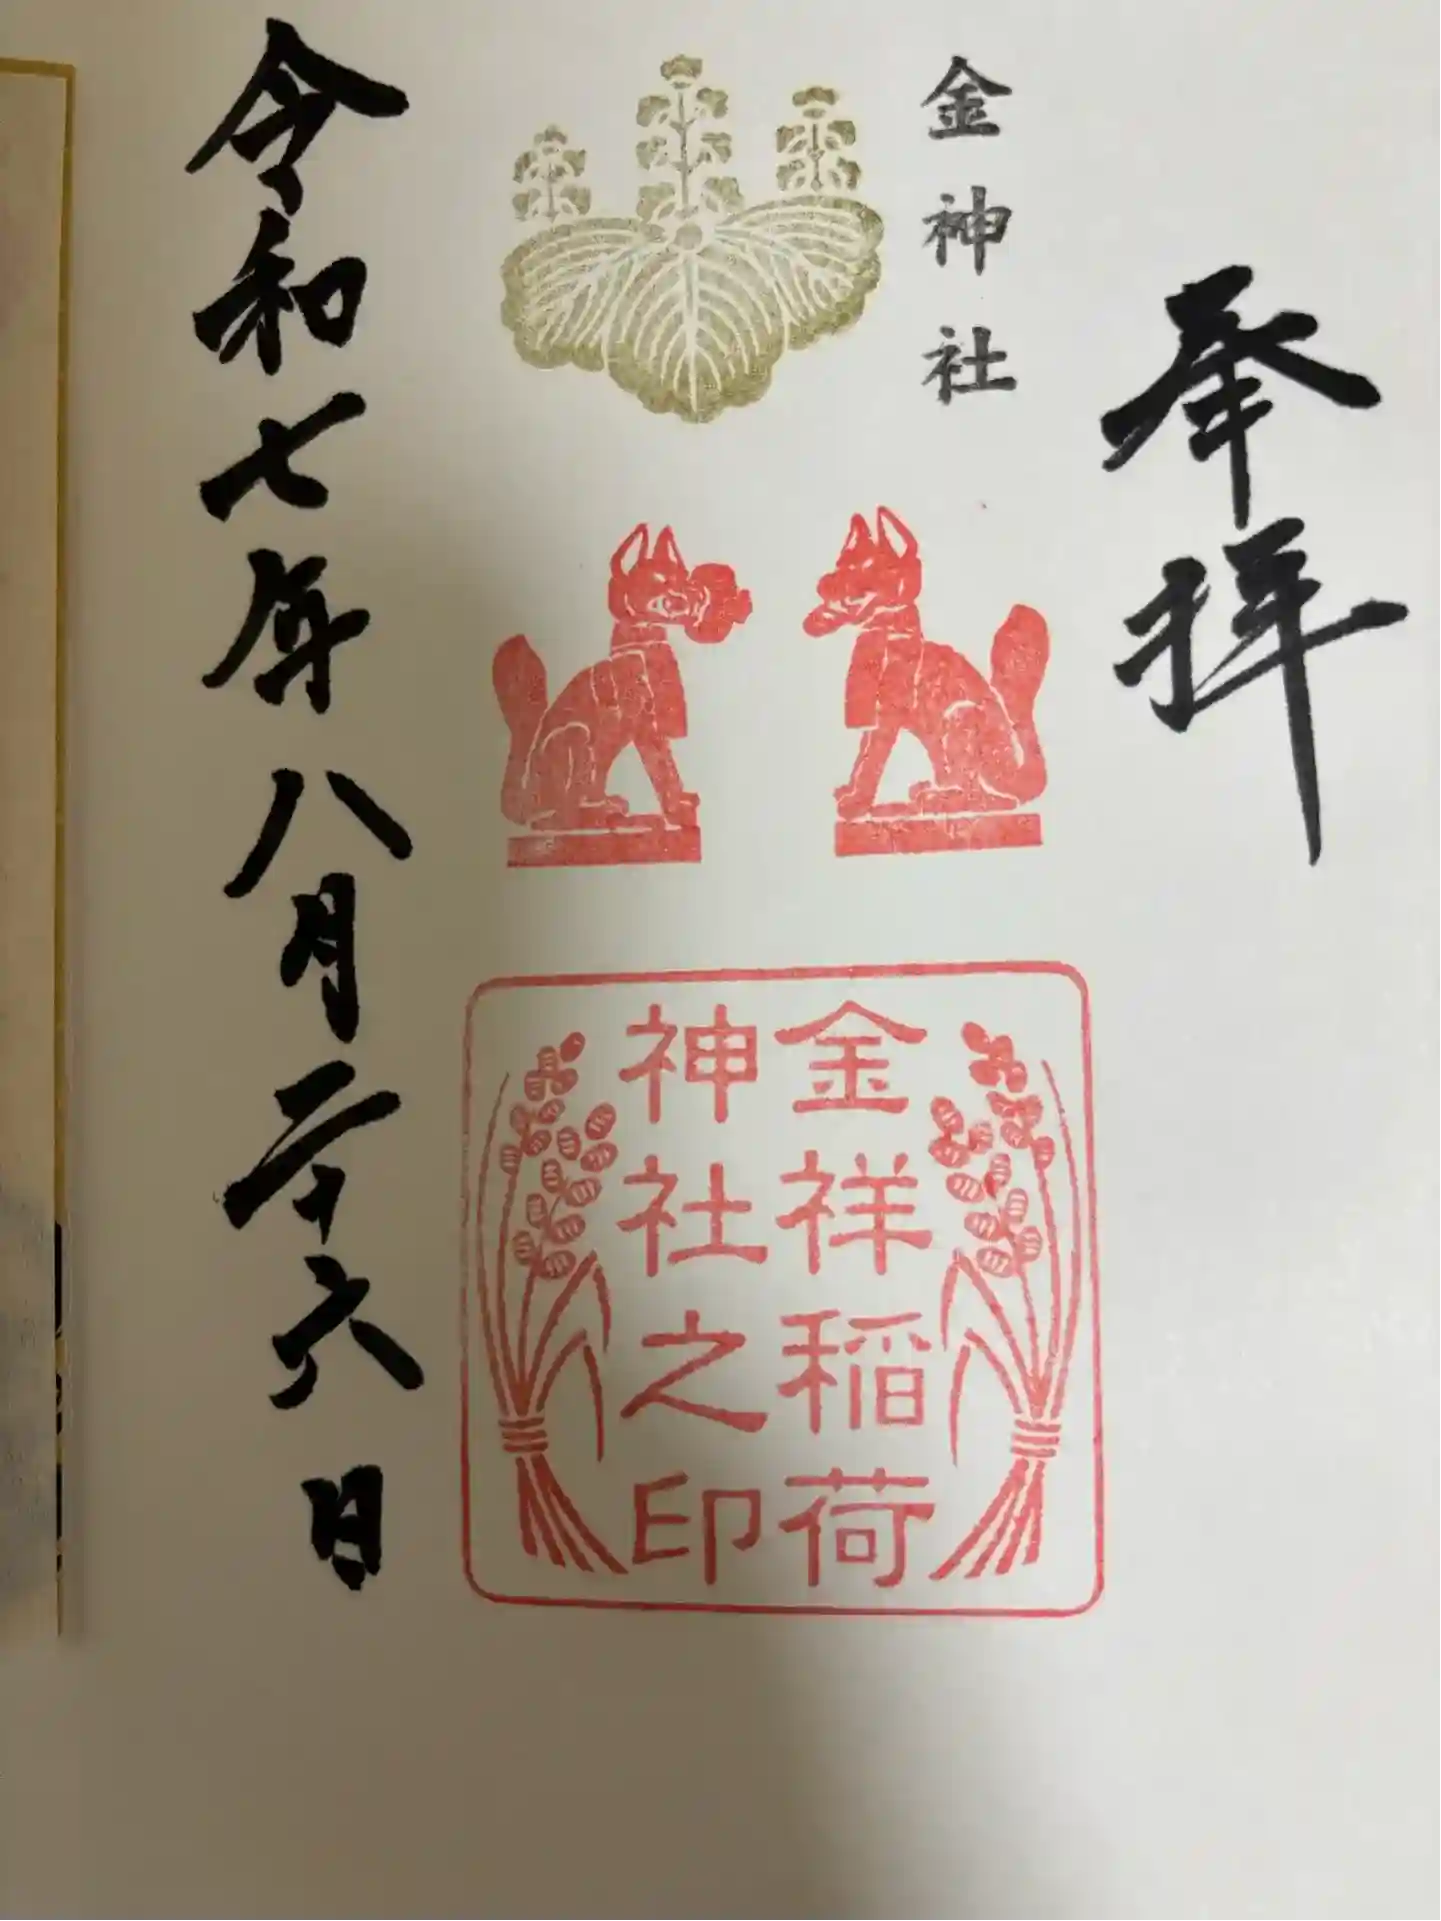 奉拝
金神社
金祥稲荷
神社之印
令和七年八月二十六日